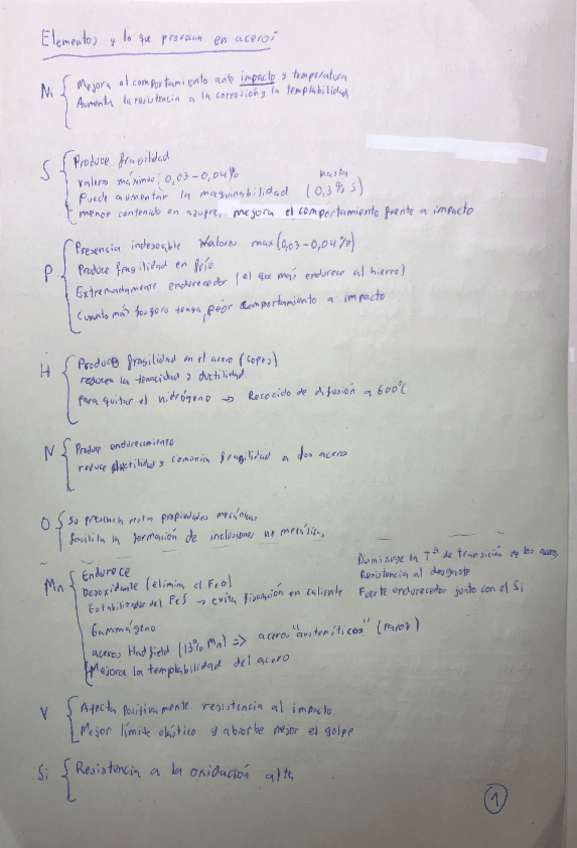 Elementos y lo que provocan en aceros:
Ni { Mejora el comportamiento ante impacto y temperatura
Aumenta la resistencia a la corrosión y la templabilidad
S { Produce fragilidad
Valores máximos (0,03-0,04%
Puede aumentar la maquinabilidad (hasta 0,3% S)
menor contenido en azufre, mejora el comportamiento frente a impacto
P { Presencia indeseable Valores max (0,03-0,04%)
Produce fragilidad en frío
Extremadamente endurecedor (el que más endurece al hierro)
Cuanto más fosforo tenga, peor comportamiento a impacto
H { Produce fragilidad en el acero (copos)
reducen la tenacidad y ductilidad.
Para quitar el hidrógeno → Recocido de difusión a 600°C
N { Produce endurecimiento
reduce ductilidad y comunica fragilidad a acero
O { Su presencia resta propiedades mecánicas
facilita la formación de inclusiones no metálicas
Mn { Endurece
Desoxidante (elimina el FeO)
Estabilizador del FeS → evita fisuración en caliente
Gammágeno
aceros Hadfield (13% Mn) => aceros "austeníticos" (raros)
Mejora la templabilidad del acero
Disminuye la Tª de transición de los aceros
Resistencia al desgaste
Fuerte endurecedor junto con el Si
V { Afecta positivamente resistencia al impacto
Mejor límite elástico y absorbe mejor el golpe
Si { Resistencia a la oxidación alta
1